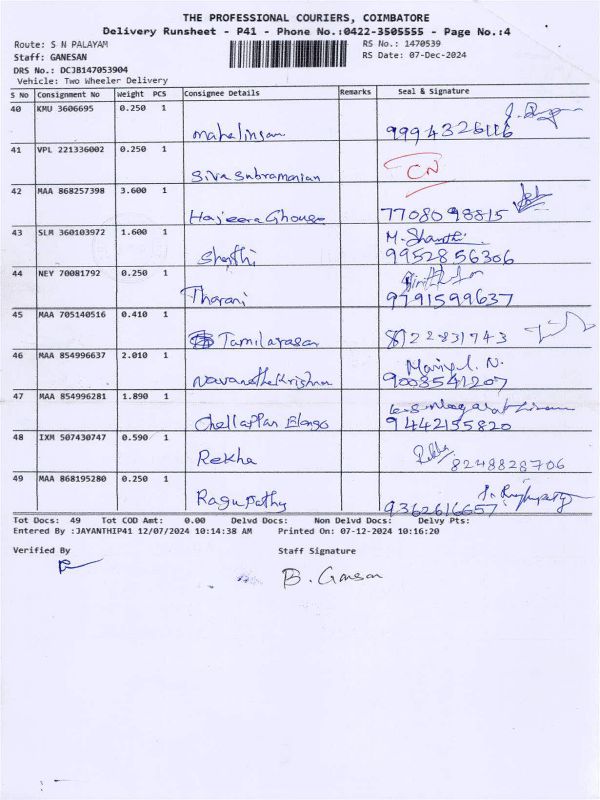 THE PROFESSIONAL COURIERS, COIMBATORE
Delivery Runsheet - P41 - Phone No.:0422-3505555 - Page No.:4
Route: S N PALAYAM RS No.: 1470539
Staff: GANESAN RS Date: 07-Dec-2024
DRS No.: DCJB147053904
Vehicle: Two Wheeler Delivery
S No Consignment No Weight PCS Consignee Details Remarks Seal & Signature
40 KMU 3606695 0.250 1
mahalingam 9994326116
41 VPL 221336002 0.250 1
Siva Subramanian CN
42 MAA 868257398 3.600 1
Hajeera Ghouse 7708098815
43 SLM 360103972 1.600 1 M. Shanthi
Shanthi 9952856306
44 NEY 70081792 0.250 1
Tharani 9791599637
45 MAA 705140516 0.410 1
Tamilarasan 8122831743
46 MAA 854996637 2.010 1
Navaneethakrishna 9003541207
47 MAA 854996281 1.890 1
Chellappan Elango 9442155820
48 IXM 507430747 0.590 1 Rekha
Rekha 8248828706
49 MAA 868195280 0.250 1
Ragupathy 9362616657
Tot Docs: 49 Tot COD Amt: 0.00 Delvd Docs: Non Delvd Docs: Delvy Pts:
Entered By :JAYANTHIP41 12/07/2024 10:14:38 AM Printed On: 07-12-2024 10:16:20
Verified By Staff Signature
B. Ganesan